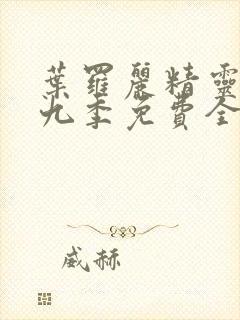 葉羅麗精靈
九季免費全
威赫